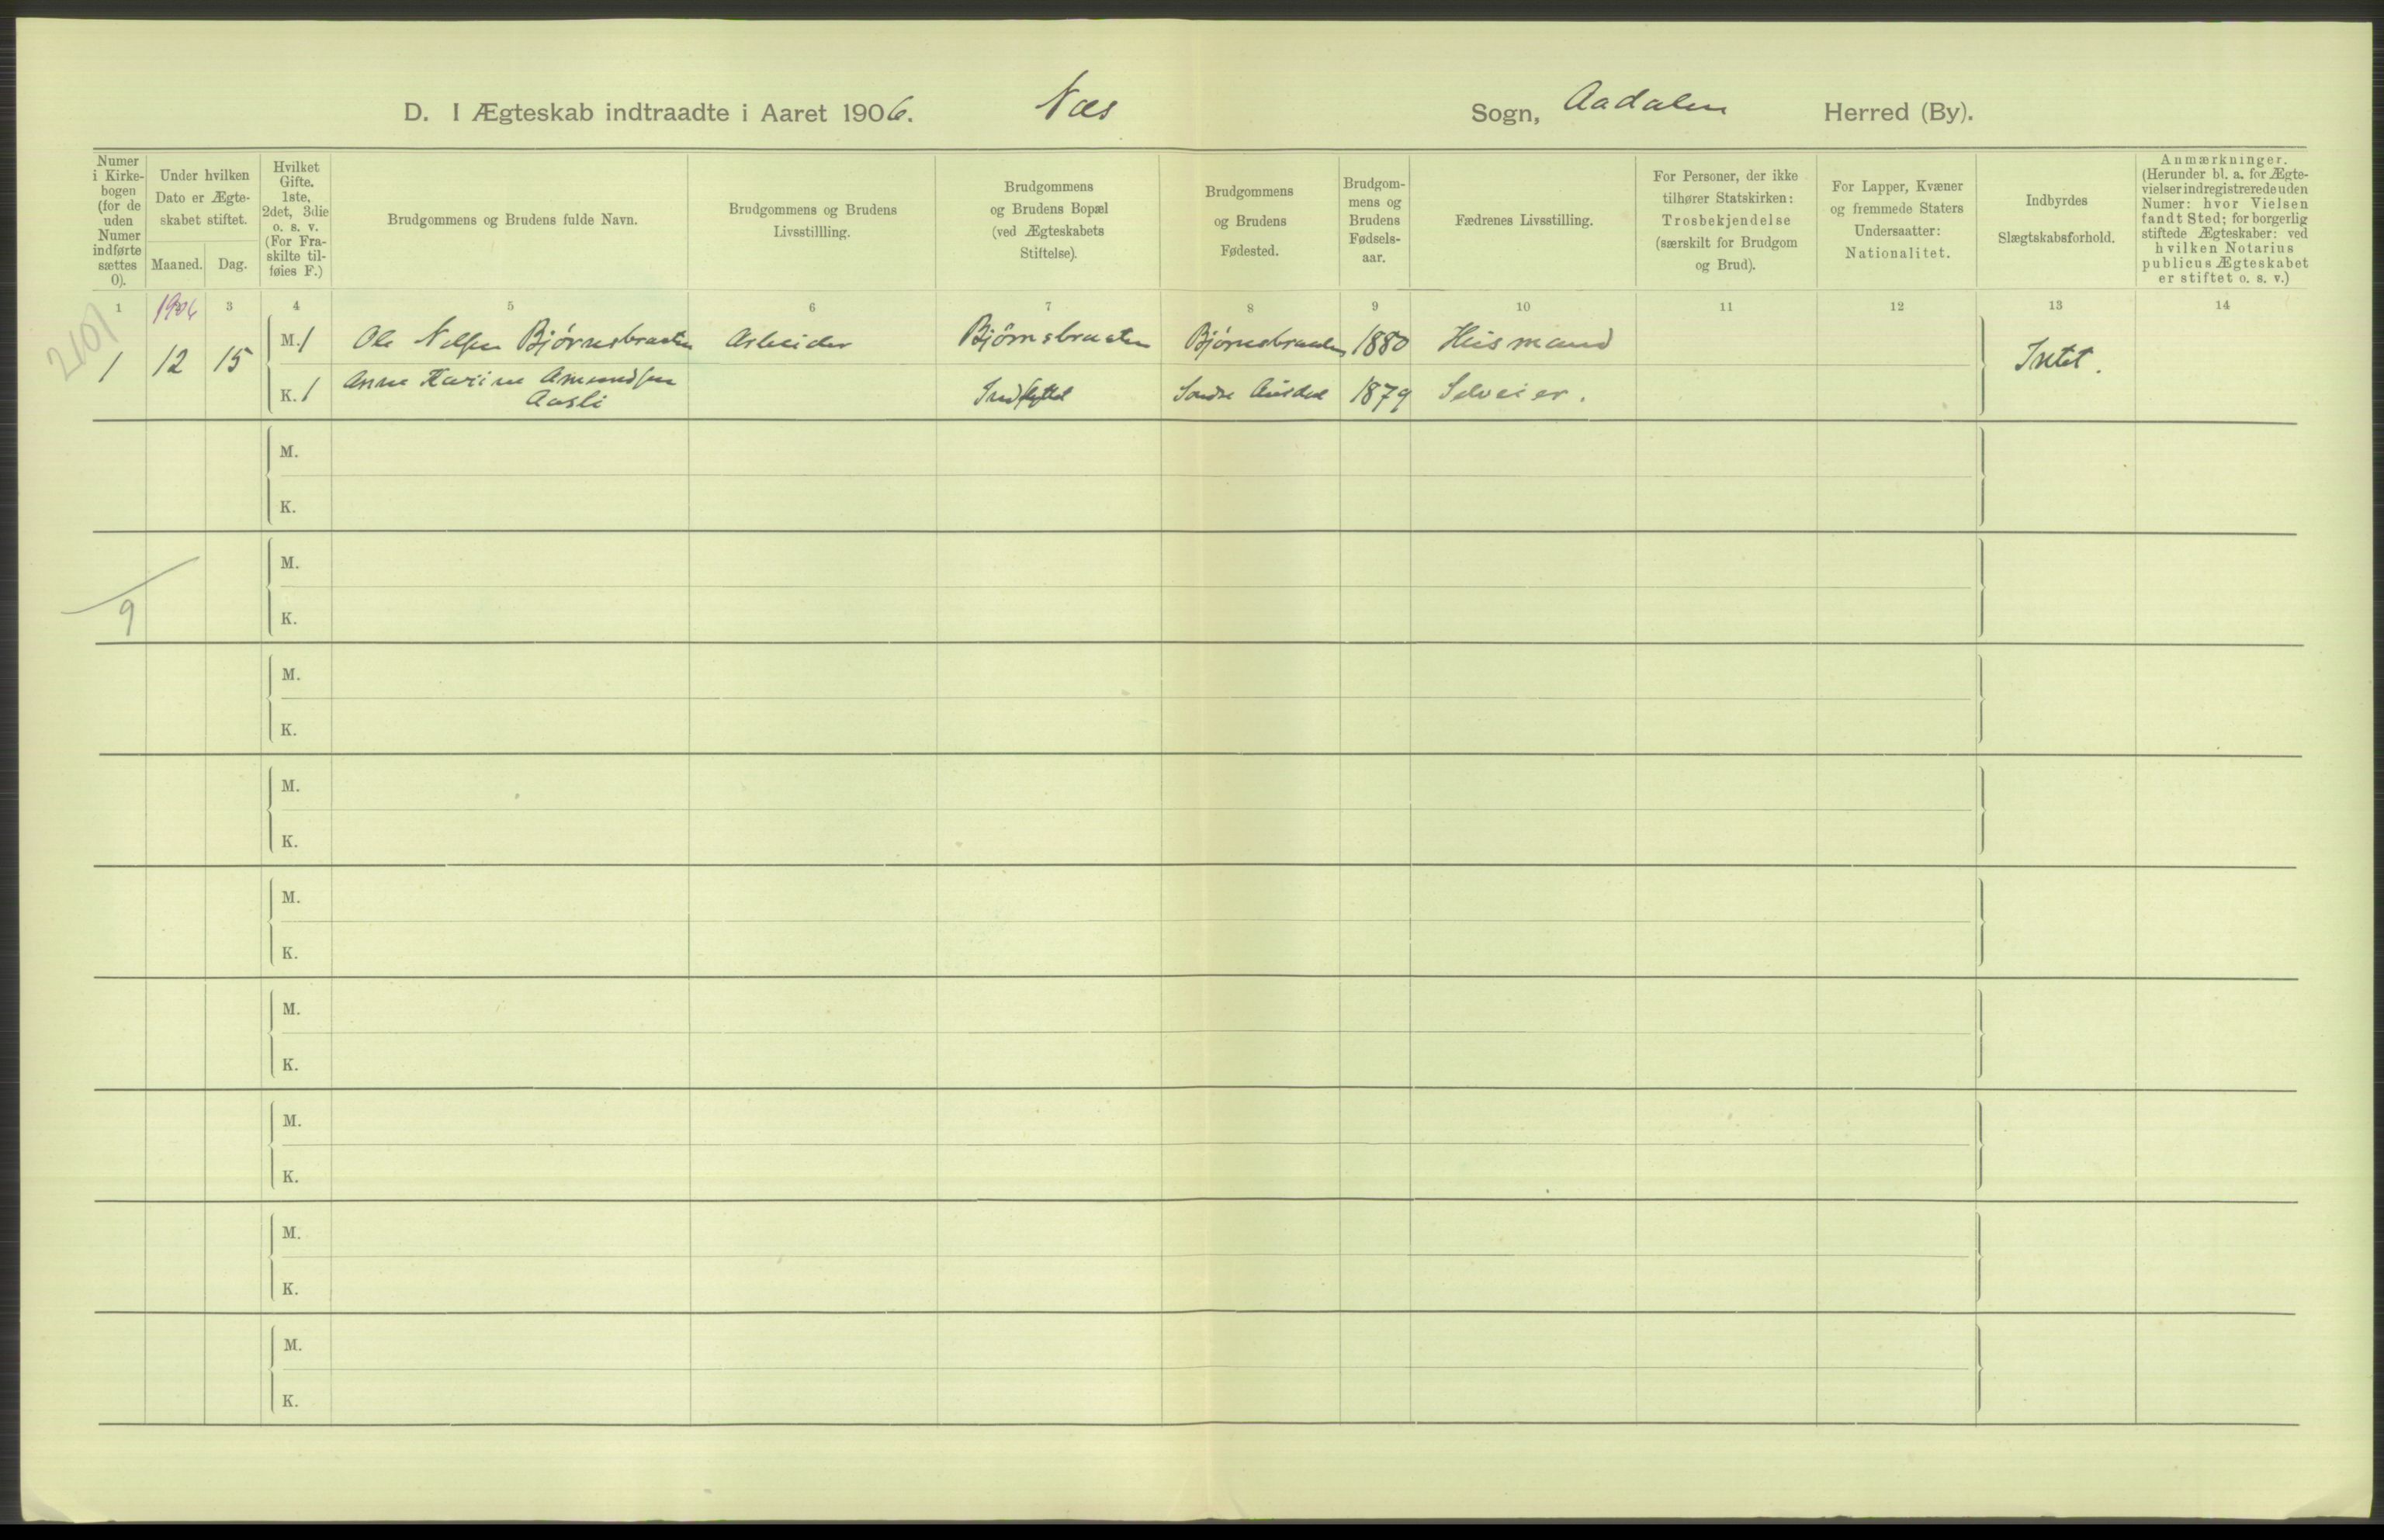 D. I Ægteskab indtraadte i Aaret 1906. Næs Sogn, Aadalen Herred (By).
Numer i Kirke-bogen (for de uden Numer indførte sættes 0).
Under hvilken Dato er Ægte-skabet stiftet.
Maaned. Dag.
Hvilket Gifte. 1ste, 2det, 3die o. s. v. (For Fra-skilte til-føies F.)
Brudgommens og Brudens fulde Navn.
Brudgommens og Brudens Livsstillling.
Brudgommens og Brudens Bopæl (ved Ægteskabets Stiftelse).
Brudgommens og Brudens Fødested.
Brudgom-mens og Brudens Fødsels-aar.
Fædrenes Livsstilling.
For Personer, der ikke tilhører Statskirken: Trosbekjendelse (særskilt for Brudgom og Brud).
For Lapper, Kvæner og fremmede Staters Undersaatter: Nationalitet.
Indbyrdes Slægtskabsforhold.
Anmærkninger. (Herunder bl. a. for Ægte-vielser indregistrerede uden Numer: hvor Vielsen fandt Sted; for borgerlig stiftede Ægteskaber: ved hvilken Notarius publicus Ægteskabet er stiftet o. s. v.)
1 1906 3 4 5 6 7 8 9 10 11 12 13 14
2101
1 12 15 M. 1 Ole Nilsen Bjørnsbraaten Arbeider Bjørnsbraaten Bjørnsbraaten 1880 Husmand Intet.
K. 1 Anne Karine Amundsen Aasli Søndre Aurdal 1879 Selveier.
M.
K.
M.
9 K.
M.
K.
M.
K.
M.
K.
M.
K.
M.
K.
M.
K.
M.
K.